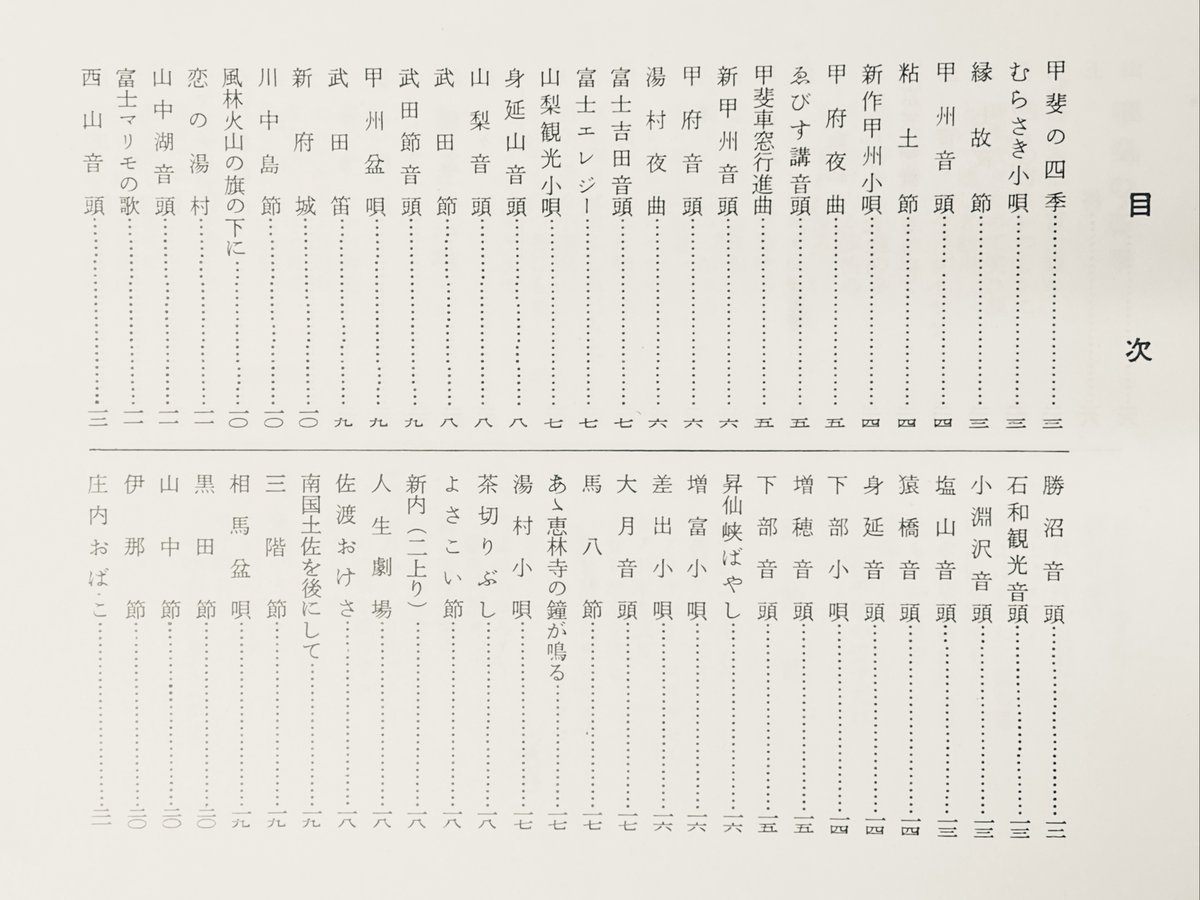 目次
甲斐の四季……………三
むらさき小唄……………三
縁故節……………三
甲州音頭……………四
粘土節……………四
新作甲州小唄……………四
甲府夜曲……………五
ゑびす講音頭……………五
甲斐車窓行進曲……………五
新甲州音頭……………六
甲府音頭……………六
湯村夜曲……………六
富士吉田音頭……………七
富士エレジー……………七
山梨観光小唄……………七
身延山音頭……………八
山梨音頭……………八
武田節……………八
武田節音頭……………九
甲州盆唄……………九
武田笛……………九
新府城……………一〇
川中島節……………一〇
風林火山の旗の下に……………一〇
恋の湯村……………一一
山中湖音頭……………一一
富士マリモの歌……………一一
西山音頭……………一二
勝沼音頭……………一二
石和観光音頭……………一三
小淵沢音頭……………一三
塩山音頭……………一三
猿橋音頭……………一四
身延音頭……………一四
下部小唄……………一四
増穂音頭……………一五
下部音頭……………一五
昇仙峡ばやし……………一六
増富小唄……………一六
差出小唄……………一六
大月音頭……………一七
馬八節……………一七
あゝ恵林寺の鐘が鳴る……………一七
湯村小唄……………一七
茶切りぶし……………一八
よさこい節……………一八
新内(二上り)……………一八
人生劇場……………一八
佐渡おけさ……………一八
南国土佐を後にして……………一九
三階節……………一九
相馬盆唄……………一九
黒田節……………二〇
山中節……………二〇
伊那節……………二〇
庄内おばこ……………二一